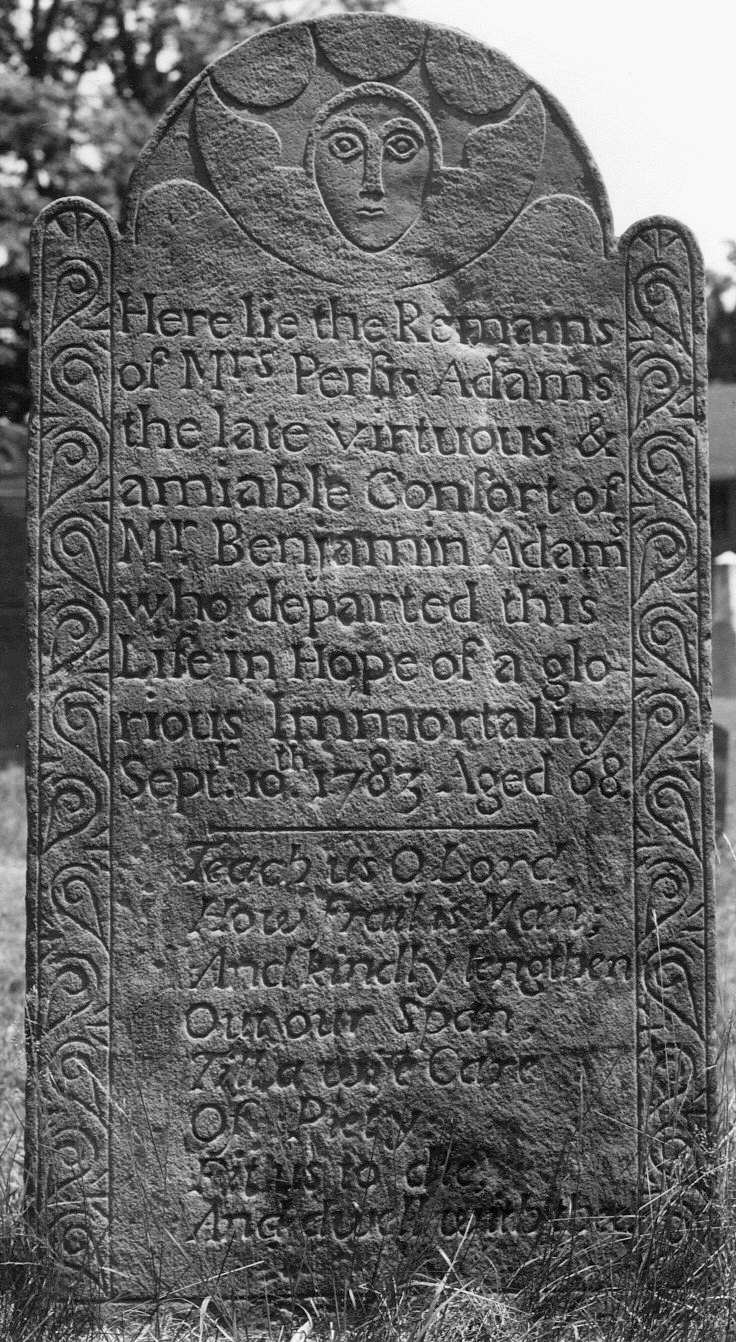 Here lie the Remains
of Mrs Perſis Adams
the late virtuous &
amiable Conſort of
Mr Benjamin Adams
who departed this
Life in Hope of a glo-
rious Immortality
Septr. 10th. 1783 Aged 68.
Teach us O Lord,
How Frail is Man;
And kindly lengthen
Out our Span.
Till a wise Care
Of Piety
Fit us to die.
And dwell with thee